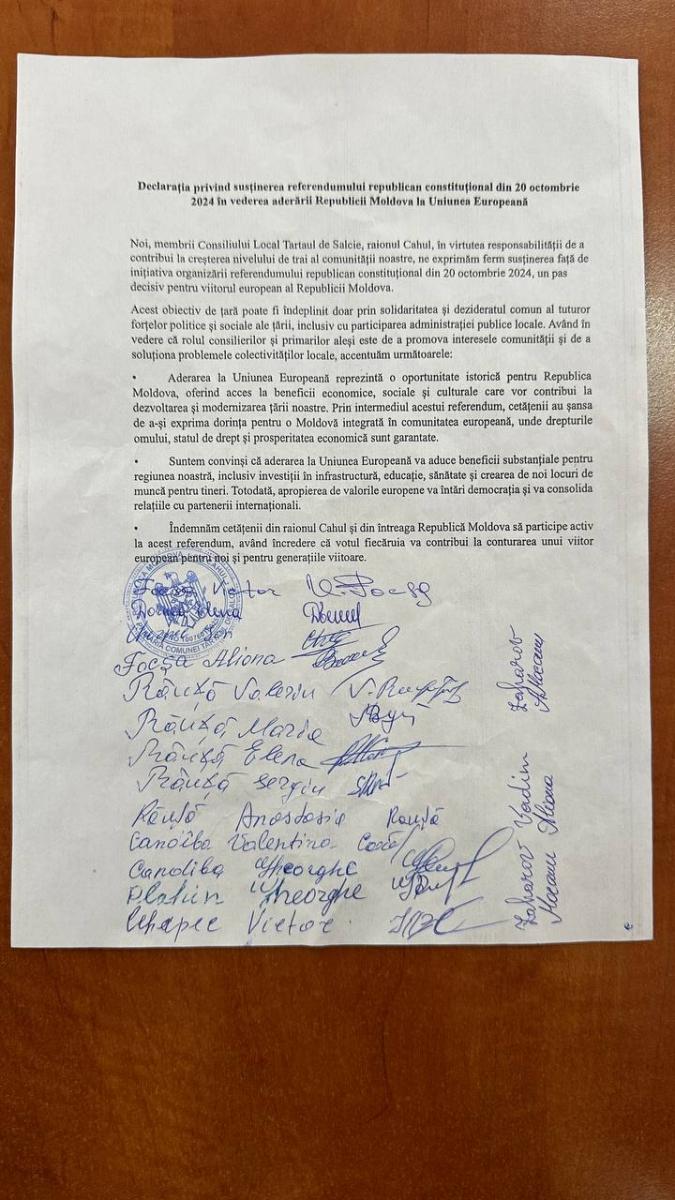 Declarația privind susținerea referendumului republican constituțional din 20 octombrie
2024 în vederea aderării Republicii Moldova la Uniunea Europeană
Noi, membrii Consiliului Local Tartaul de Salcie, raionul Cahul, în virtutea responsabilității de a
contribui la creșterea nivelului de trai al comunității noastre, ne exprimăm ferm susținerea față de
inițiativa organizării referendumului republican constituțional din 20 octombrie 2024, un pas
decisiv pentru viitorul european al Republicii Moldova.
Acest obiectiv de țară poate fi îndeplinit doar prin solidaritatea și dezideratul comun al tuturor
forțelor politice și sociale ale țării, inclusiv cu participarea administrației publice locale. Având în
vedere că rolul consilierilor și primarilor aleși este de a promova interesele comunității și de a
soluționa problemele colectivităților locale, accentuăm următoarele:
• Aderarea la Uniunea Europeană reprezintă o oportunitate istorică pentru Republica
Moldova, oferind acces la beneficii economice, sociale și culturale care vor contribui la
dezvoltarea și modernizarea țării noastre. Prin intermediul acestui referendum, cetățenii au șansa
de a-și exprima dorința pentru o Moldovă integrată în comunitatea europeană, unde drepturile
omului, statul de drept și prosperitatea economică sunt garantate.
• Suntem convinși că aderarea la Uniunea Europeană va aduce beneficii substanțiale pentru
regiunea noastră, inclusiv investiții în infrastructură, educație, sănătate și crearea de noi locuri de
muncă pentru tineri. Totodată, apropierea de valorile europene va întări democrația și va consolida
relațiile cu partenerii internaționali.
• Îndemnăm cetățenii din raionul Cahul și din întreaga Republică Moldova să participe activ
la acest referendum, având încredere că votul fiecăruia va contribui la conturarea unui viitor
european pentru noi și pentru generațiile viitoare.
Victor
Elena
Focșa Aliona
Rănță Valeriu
Rănță Maria
Rănță Elena
Rănță Sergiu
Rănță Anastasia Ranță
Candiba Valentina
Candiba Gheorghe
Gheorghe
Victor
Zaharov Vadim Zaharov
Mocanu Aliona AMocanu